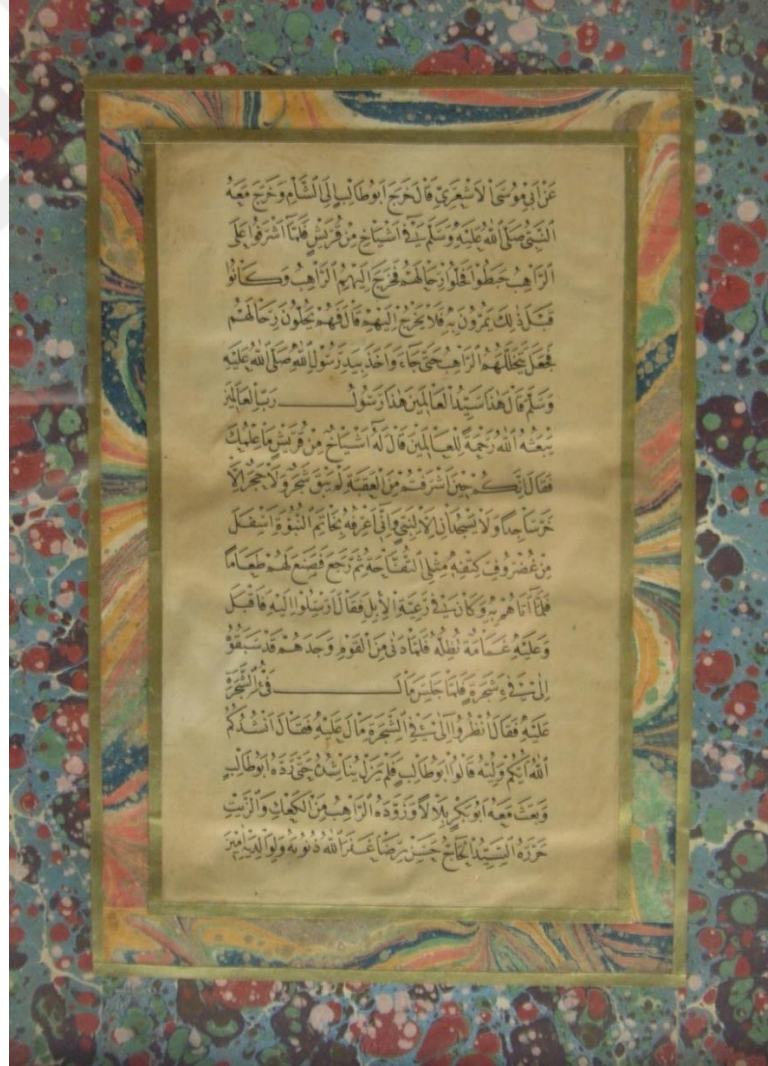 عَنْ اَبِي مُوسَى الْاَشْعَرِيِّ قَالَ خَرَجَ اَبُو طَالِبٍ اِلَى الشَّامِ وَخَرَجَ مَعَهُ
النَّبِيُّ صَلَّى اللهُ عَلَيْهِ وَسَلَّمَ فِي اَشْيَاخٍ مِنْ قُرَيْشٍ فَلَمَّا اَشْرَفُوا عَلَى
الرَّاهِبِ هَبَطُوا فَحَلُّوا رِحَالَهُمْ فَخَرَجَ اِلَيْهِمُ الرَّاهِبُ وَكَانُوا
قَبْلَ ذٰلِكَ يَمُرُّونَ بِهِ فَلَا يَخْرُجُ اِلَيْهِمْ قَالَ فَهُمْ يَحُلُّونَ رِحَالَهُمْ
فَجَعَلَ يَتَخَلَّلُهُمُ الرَّاهِبُ حَتَّى جَاءَ وَاَخَذَ بِيَدِ رَسُولِ اللهِ صَلَّى اللهُ عَلَيْهِ
وَسَلَّمَ قَالَ هٰذَا سَيِّدُ الْعَالَمِينَ هٰذَا رَسُولُ رَبِّ الْعَالَمِينَ
يَبْعَثُهُ اللهُ رَحْمَةً لِلْعَالَمِينَ قَالَ لَهُ اَشْيَاخٌ مِنْ قُرَيْشٍ مَا عِلْمُكَ
فَقَالَ اِنَّكُمْ حِينَ اَشْرَفْتُمْ مِنَ الْعَقَبَةِ لَمْ يَبْقَ شَجَرٌ وَلَا حَجَرٌ اِلَّا
خَرَّ سَاجِدًا وَلَا يَسْجُدَانِ اِلَّا لِنَبِيٍّ وَاِنِّي اَعْرِفُهُ بِخَاتَمِ النُّبُوَّةِ اَسْفَلَ
مِنْ غُضْرُوفِ كَتِفِهِ مِثْلِ التُّفَّاحَةِ ثُمَّ رَجَعَ فَصَنَعَ لَهُمْ طَعَامًا
فَلَمَّا اَتَاهُمْ بِهِ وَكَانَ فِي رَعْيَةِ الْاِبِلِ فَقَالَ اَرْسِلُوا اِلَيْهِ فَاَقْبَلَ
وَعَلَيْهِ غَمَامَةٌ تُظِلُّهُ فَلَمَّا دَنٰى مِنَ الْقَوْمِ وَجَدَهُمْ قَدْ سَبَقُوْ
اِلٰى فَيْءِ شَجَرَةٍ فَلَمَّا جَلَسَ مَالَ فَيْءُ الشَّجَرَةِ
عَلَيْهِ فَقَالَ اُنْظُرُوا اِلٰى فَيْءِ الشَّجَرَةِ مَالَ عَلَيْهِ فَقَالَ اَنْشُدُكُمُ
اللهَ اَيُّكُمْ وَلِيُّهُ قَالُوا اَبُو طَالِبٍ فَلَمْ يَزَلْ يُنَاشِدُهُ حَتَّى رَدَّهُ اَبُو طَالِبٍ
وَبَعَثَ مَعَهُ اَبُو بَكْرٍ بِلَالًا وَزَوَّدَهُ الرَّاهِبُ مِنَ الْكَعْكِ وَالزَّيْتِ
حَرَّرَهُ السَّيِّدُ الْحَاجُّ حَسَنْ رِضَا غَفَرَ اللهُ ذُنُوبَهُ وَلِوَالِدَيْهِ اٰمِينَ